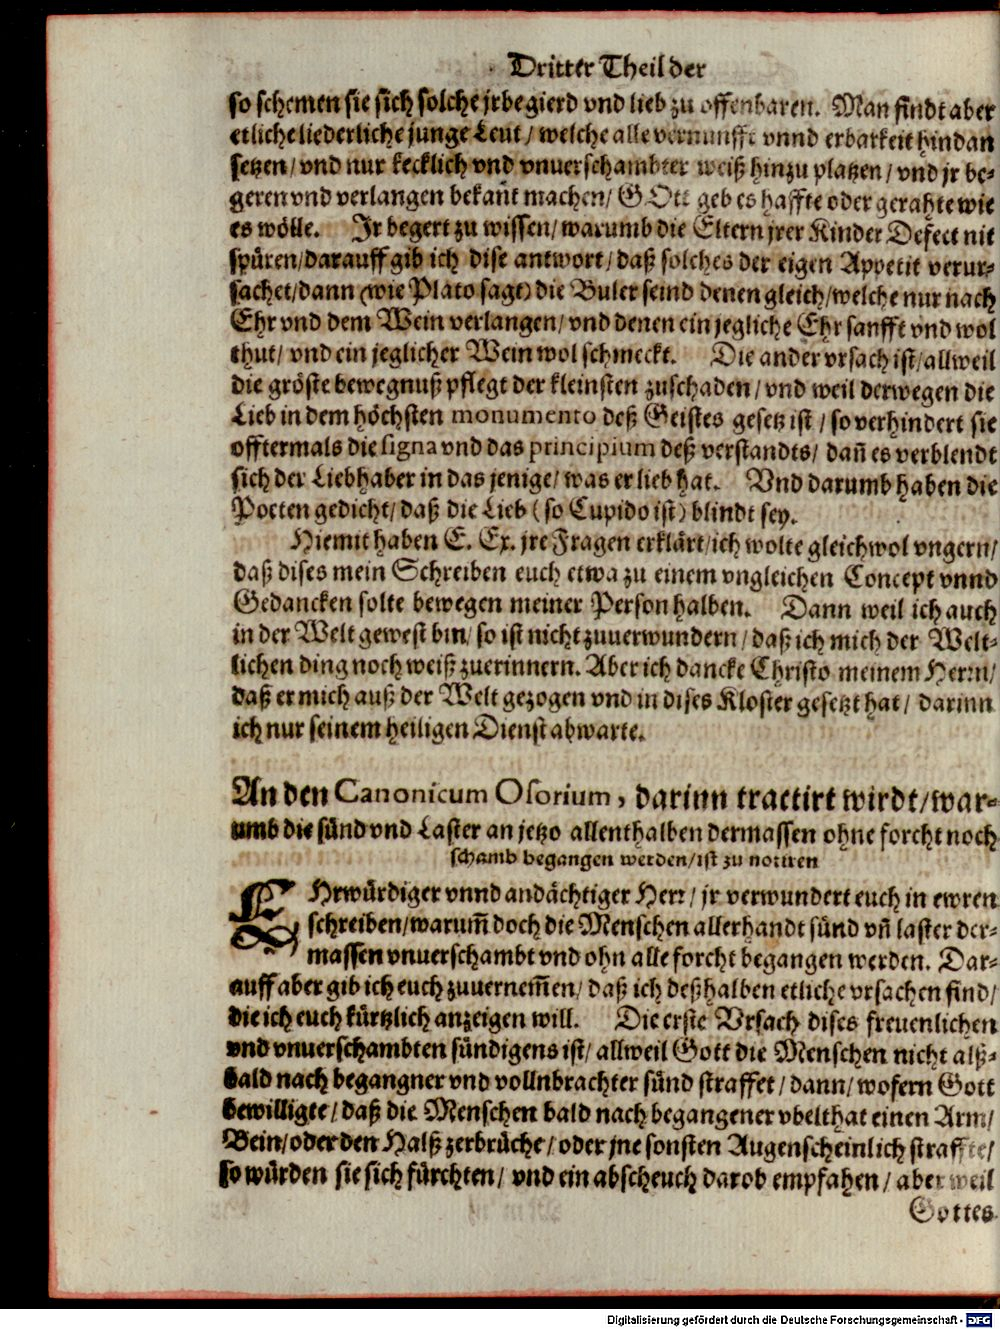 Dritter Theil der
so schemen sie sich solche jrbegierd vnd lieb zu offenbaren. Man findt aber
etliche liederliche junge Leut / welche alle vernunfft vnnd erbarkeit hindan
setzen / vnd nur kecklich vnd vnuerschambter weiß hinzu platzen / vnd jr be-
geren vnd verlangen bekañt machen / GOtt geb es haffte oder gerahte wie
es wölle. Jr begert zu wissen / warumb die Eltern jrer Kinder Defect nit
spüren / darauff gib ich dise antwort / daß solches der eigen Appetit verur-
sachet / dann (wie Plato sagt) die Buler seind denen gleich / welche nur nach
Ehr vnd dem Wein verlangen / vnd denen ein jegliche Ehr sanfft vnd wol
thut / vnd ein jeglicher Wein wol schmeckt. Die ander vrsach ist / allweil
die gröste bewegnuß pflegt der kleinsten zuschaden / vnd weil derwegen die
Lieb in dem höchsten monumento deß Geistes gesetz ist / so verhindert sie
offtermals die signa vnd das principium deß verstandts / dañ es verblendt
sich der Liebhaber in das jenige / was er lieb hat. Vnd darumb haben die
Poeten gedicht / daß die Lieb (so Cupido ist) blindt sey.
Hiemit haben E. Ex. jre Fragen erklärt / ich wolte gleichwol vngern /
daß dises mein Schreiben euch etwa zu einem vngleichen Concept vnnd
Gedancken solte bewegen meiner Person halben. Dann weil ich auch
in der Welt gewest bin / so ist nicht zuuerwundern / daß ich mich der Welt-
lichen ding noch weiß zuerinnern. Aber ich dancke Christo meinem Herrn /
daß er mich auß der Welt gezogen vnd in dises Kloster gesetzt hat / darinn
ich nur seinem heiligen Dienst abwarte.
An den Canonicum Osorium, darinn tractirt wirdt / war-
umb die sünd vnd Laster an jetzo allenthalben dermassen ohne forcht noch
schamb begangen werden / ist zu notiren
EHrwürdiger vnnd andächtiger Herr / jr verwundert euch in ewren
schreiben / warum̃ doch die Menschen allerhandt sünd vñ laster der-
massen vnuerschambt vnd ohn alle forcht begangen werden. Dar-
auff aber gib ich euch zuuernem̃en / daß ich deßhalben etliche vrsachen find /
die ich euch kürtzlich anzeigen will. Die erste Vrsach dises freuenlichen
vnd vnuerschambten sündigens ist / allweil Gott die Menschen nicht alß-
bald nach begangner vnd vollnbrachter sünd straffet / dann / wofern Gott
bewilligte / daß die Menschen bald nach begangener vbelthat einen Arm /
Bein / oder den Halß zerbrüche / oder jne sonsten Augenscheinlich straffte /
so würden sie sich fürchten / vnd ein abscheuch darob empfahen / aber weil
Gottes
Digitalisierung gefördert durch die Deutsche Forschungsgemeinschaft - DFG